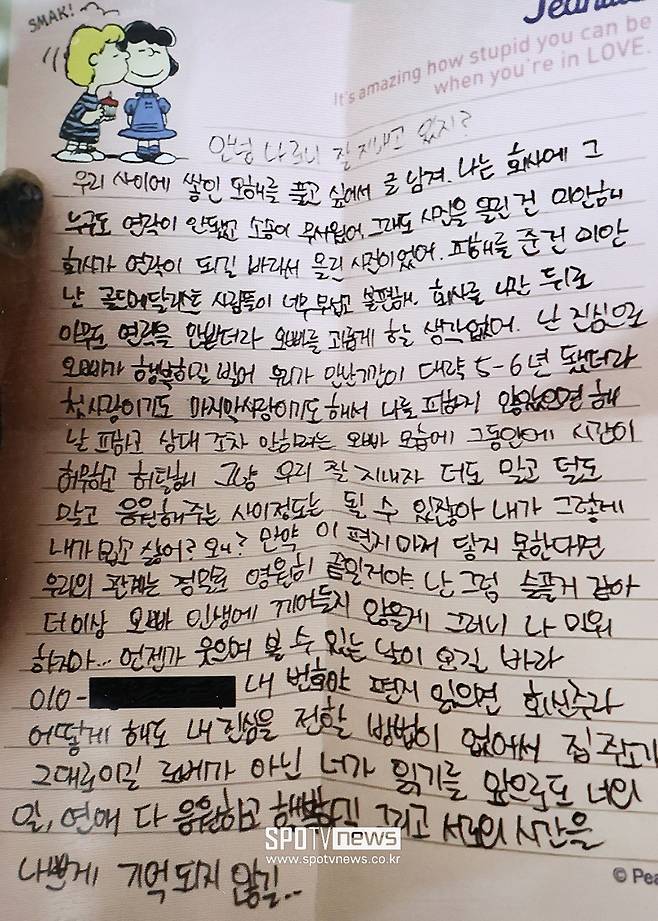 SMAK!
It's amazing how stupid you can be
when you're in LOVE.
안녕 나 잘 지내고 있지?
우리 사이에 쌓인 오해를 풀고 싶어서 글 남겨. 나는 회사에 그
누구도 연락이 안됐고 소송이 무서웠어. 그래도 사진을 올린 건 미안해
회사가 연락이 되길 바라서 올린 사진이었어. 피해를 준건 미안
난 골드메달리스트 사람들이 너무 무섭고 불편해. 회사를 나간 뒤로
아무도 연락을 안받더라 오빠를 괴롭게 할 생각없어. 난 진심으로
오빠가 행복하길 빌어 우리가 만난기간이 대략 5-6년 됐더라
첫사랑이기도 마지막사랑이기도 해서 나를 피하지 않았으면 해
날 피하고 상대 조차 안하려는 오빠 모습에 그동안에 시간이
허무하고 허탈해 그냥 우리 잘 지내자 더도 말고 덜도
말고 응원해주는 사이정도는 될 수 있잖아 내가 그렇게
내가 밉고 싫어? 왜? 만약 이 편지마저 닿지 못한다면
우리의 관계는 정말로 영원히 끝일거야. 난 그럼 슬플거 같아
더이상 오빠 인생에 끼어들지 않을게 그러니 나 미워
하지마... 언젠가 웃으며 볼 수 있는 날이 오길 바라
010- 내 번호야 편지 읽으면 회신주라
어떻게 해도 내 진심을 전할 방법이 없어서 집 주소가
그대로이길 로버가 아닌 너가 읽기를 앞으로도 너의
일, 연애 다 응원하고 그리고 서로의 시간을
나쁘게 기억되지 않길..
SPOTVNEWS
www.spotvnews.co.kr